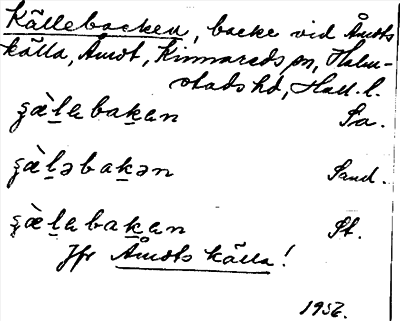 Källebacken, backe vid Åmots
källa, Åmot, Kinnareds sn, Halm-
stads hd, Hall. l.
ʂæ̀l̠abak̠an Sa.
ʂæ̀l̠əbak̠ən Sand.
ʂæ̀l̠abak̠an St.
Jfr Åmots källa!